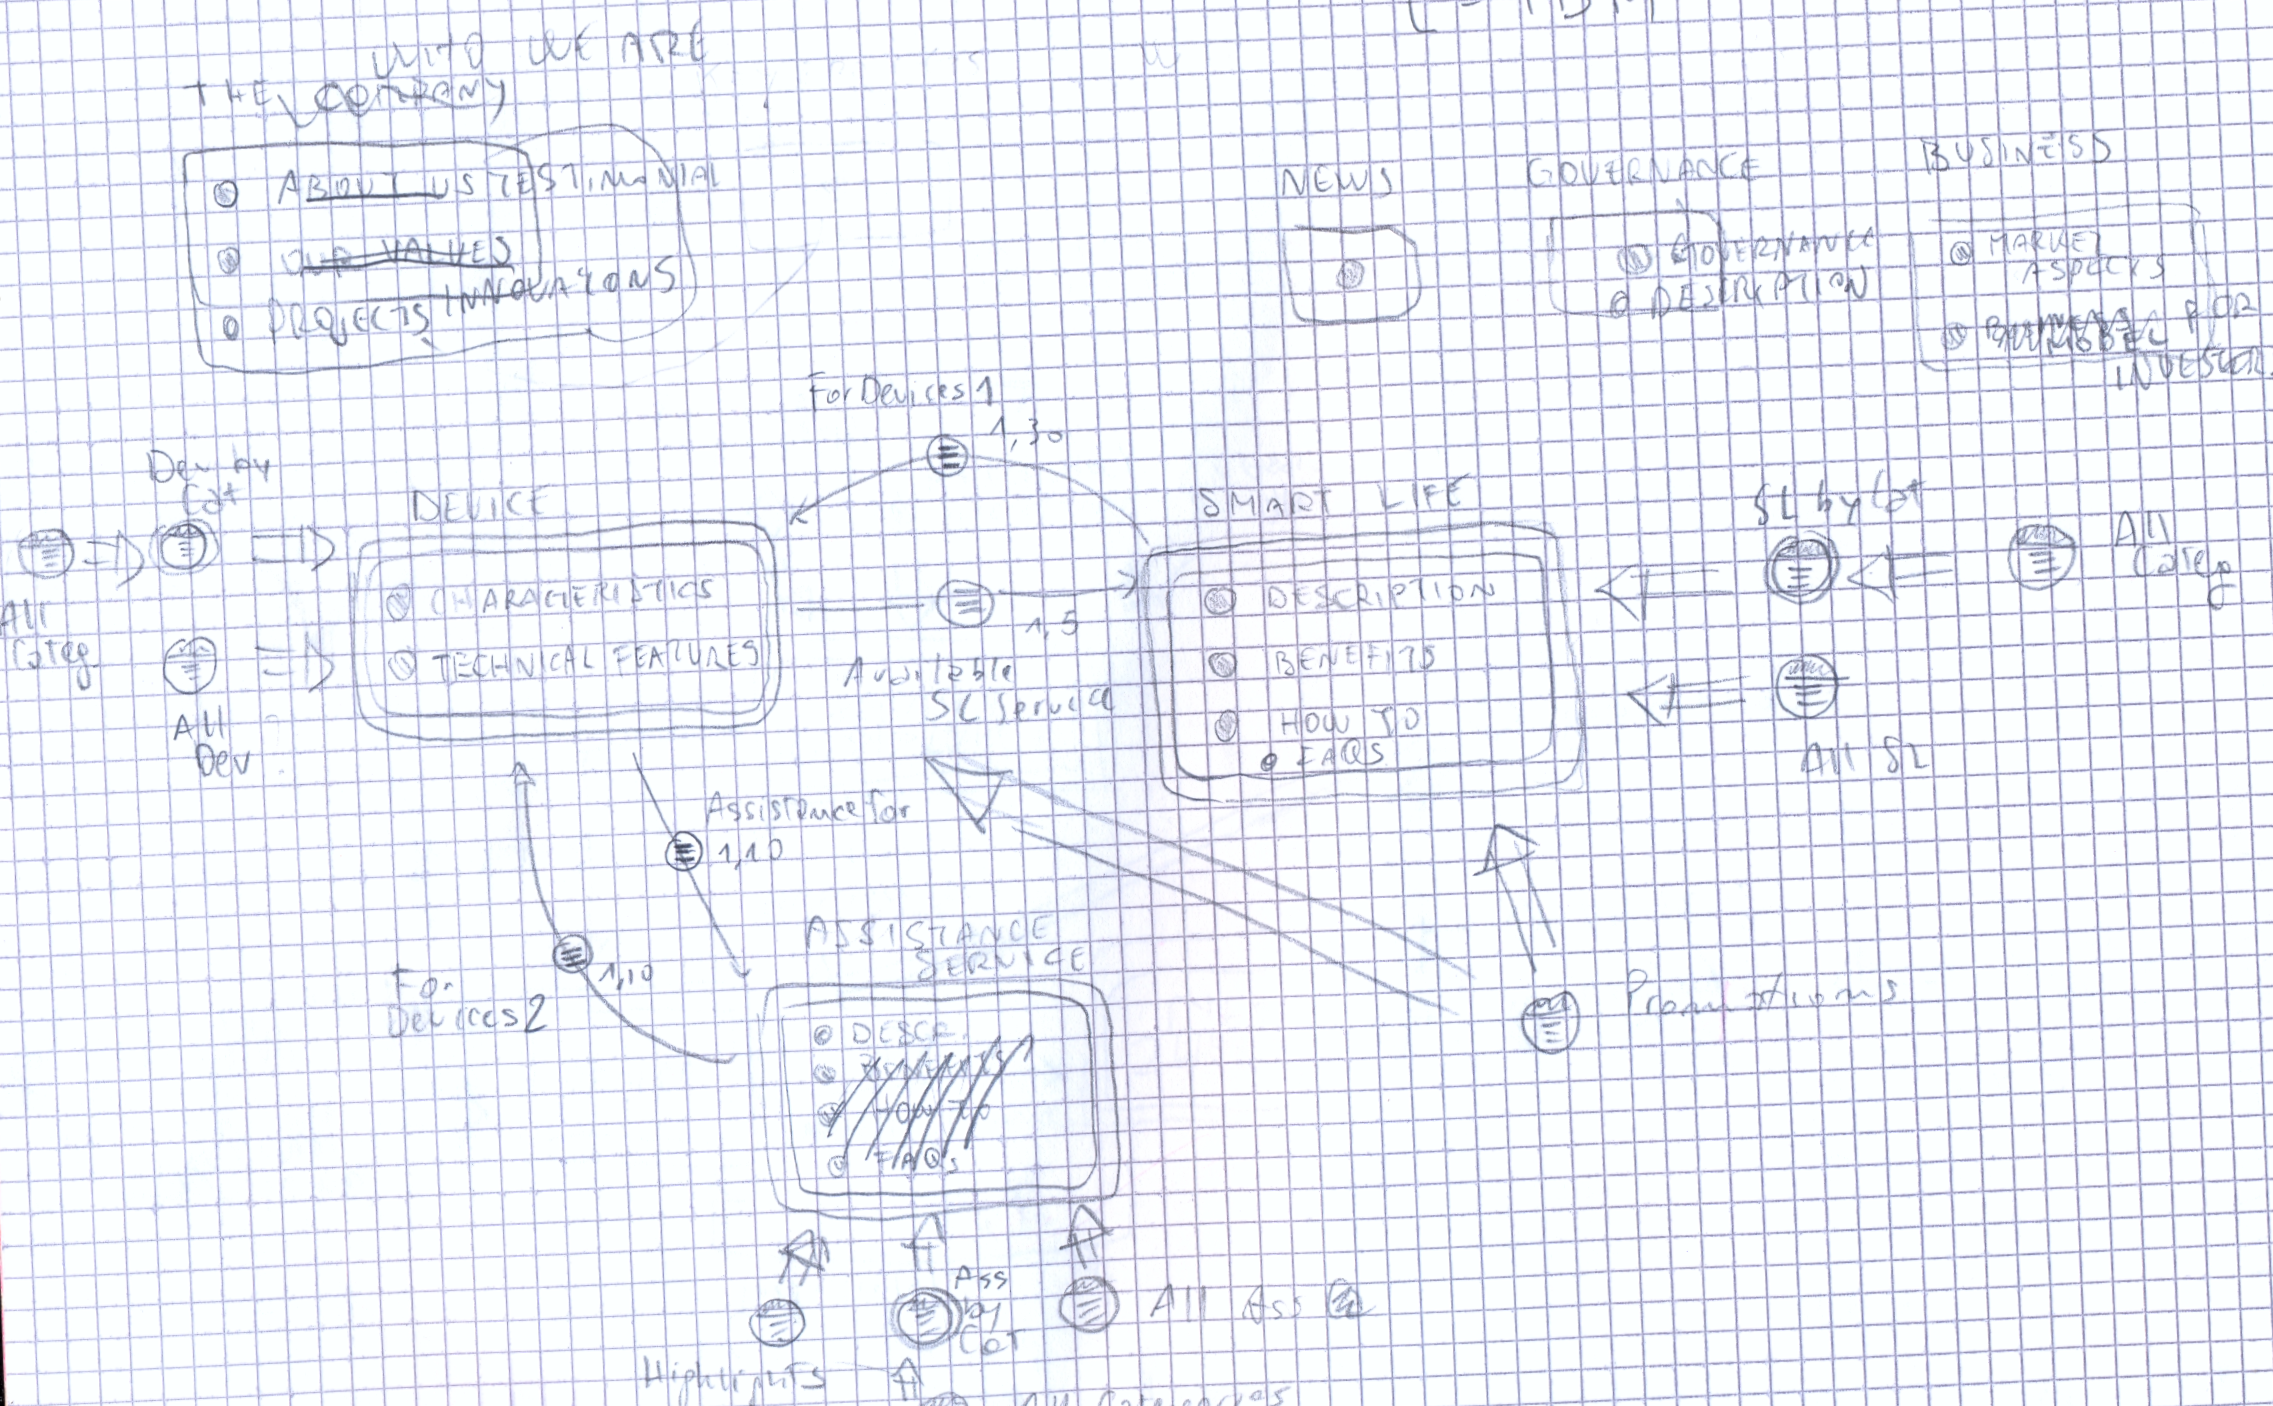 WHO WE ARE
THE COMPANY
ABOUT US TESTIMONIAL
OUR VALUES
PROJECTS INNOVATIONS
NEWS
GOVERNANCE
GOVERNANCE
DESCRIPTION
BUSINESS
MARKET
ASPECTS
FOR
INVESTOR
For Devices 1
1,30
Dev by
Cat
All
Categ
All
Dev
DEVICE
CHARACTERISTICS
TECHNICAL FEATURES
1,5
Available
SL Service
SMART LIFE
DESCRIPTION
BENEFITS
HOW TO
FAQS
SL by Cat
All
Categ
All SL
Assistance for
1,10
For
Devices 2
1,10
ASSISTANCE
SERVICE
DESCR.
BENEFITS
HOW TO
FAQS
Promotions
Highlights
Ass
by
Cat
All Ass
All Categories